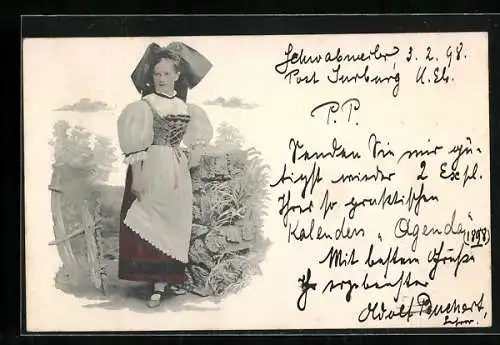 Schwabweiler, 3.2.98.
Post Surburg U. Els.
P. P.
Senden Sie mir gü-
tigst wieder 2 Expl.
Ihres so praktischen
Kalenders „Agenda"
(1898)
Mit bestem Gruße
Ihr ergebenster
Adolf Buchert,
Lehrer.